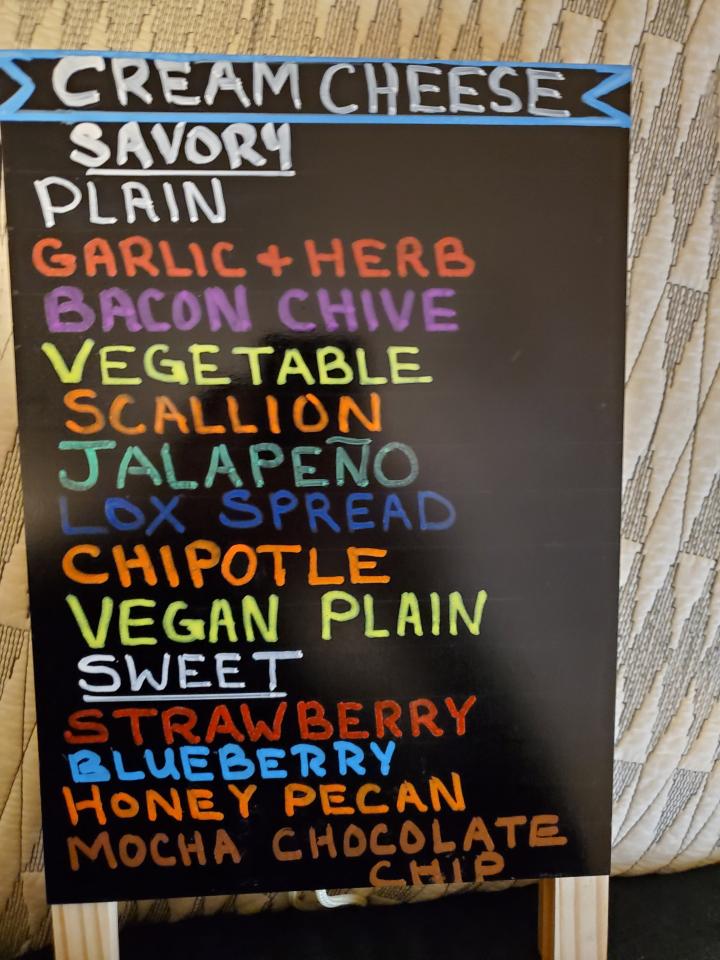 CREAM CHEESE
SAVORY
PLAIN
GARLIC + HERB
BACON CHIVE
VEGETABLE
SCALLION
JALAPEÑO
LOX SPREAD
CHIPOTLE
VEGAN PLAIN
SWEET
STRAWBERRY
BLUEBERRY
HONEY PECAN
MOCHA CHOCOLATE
CHIP